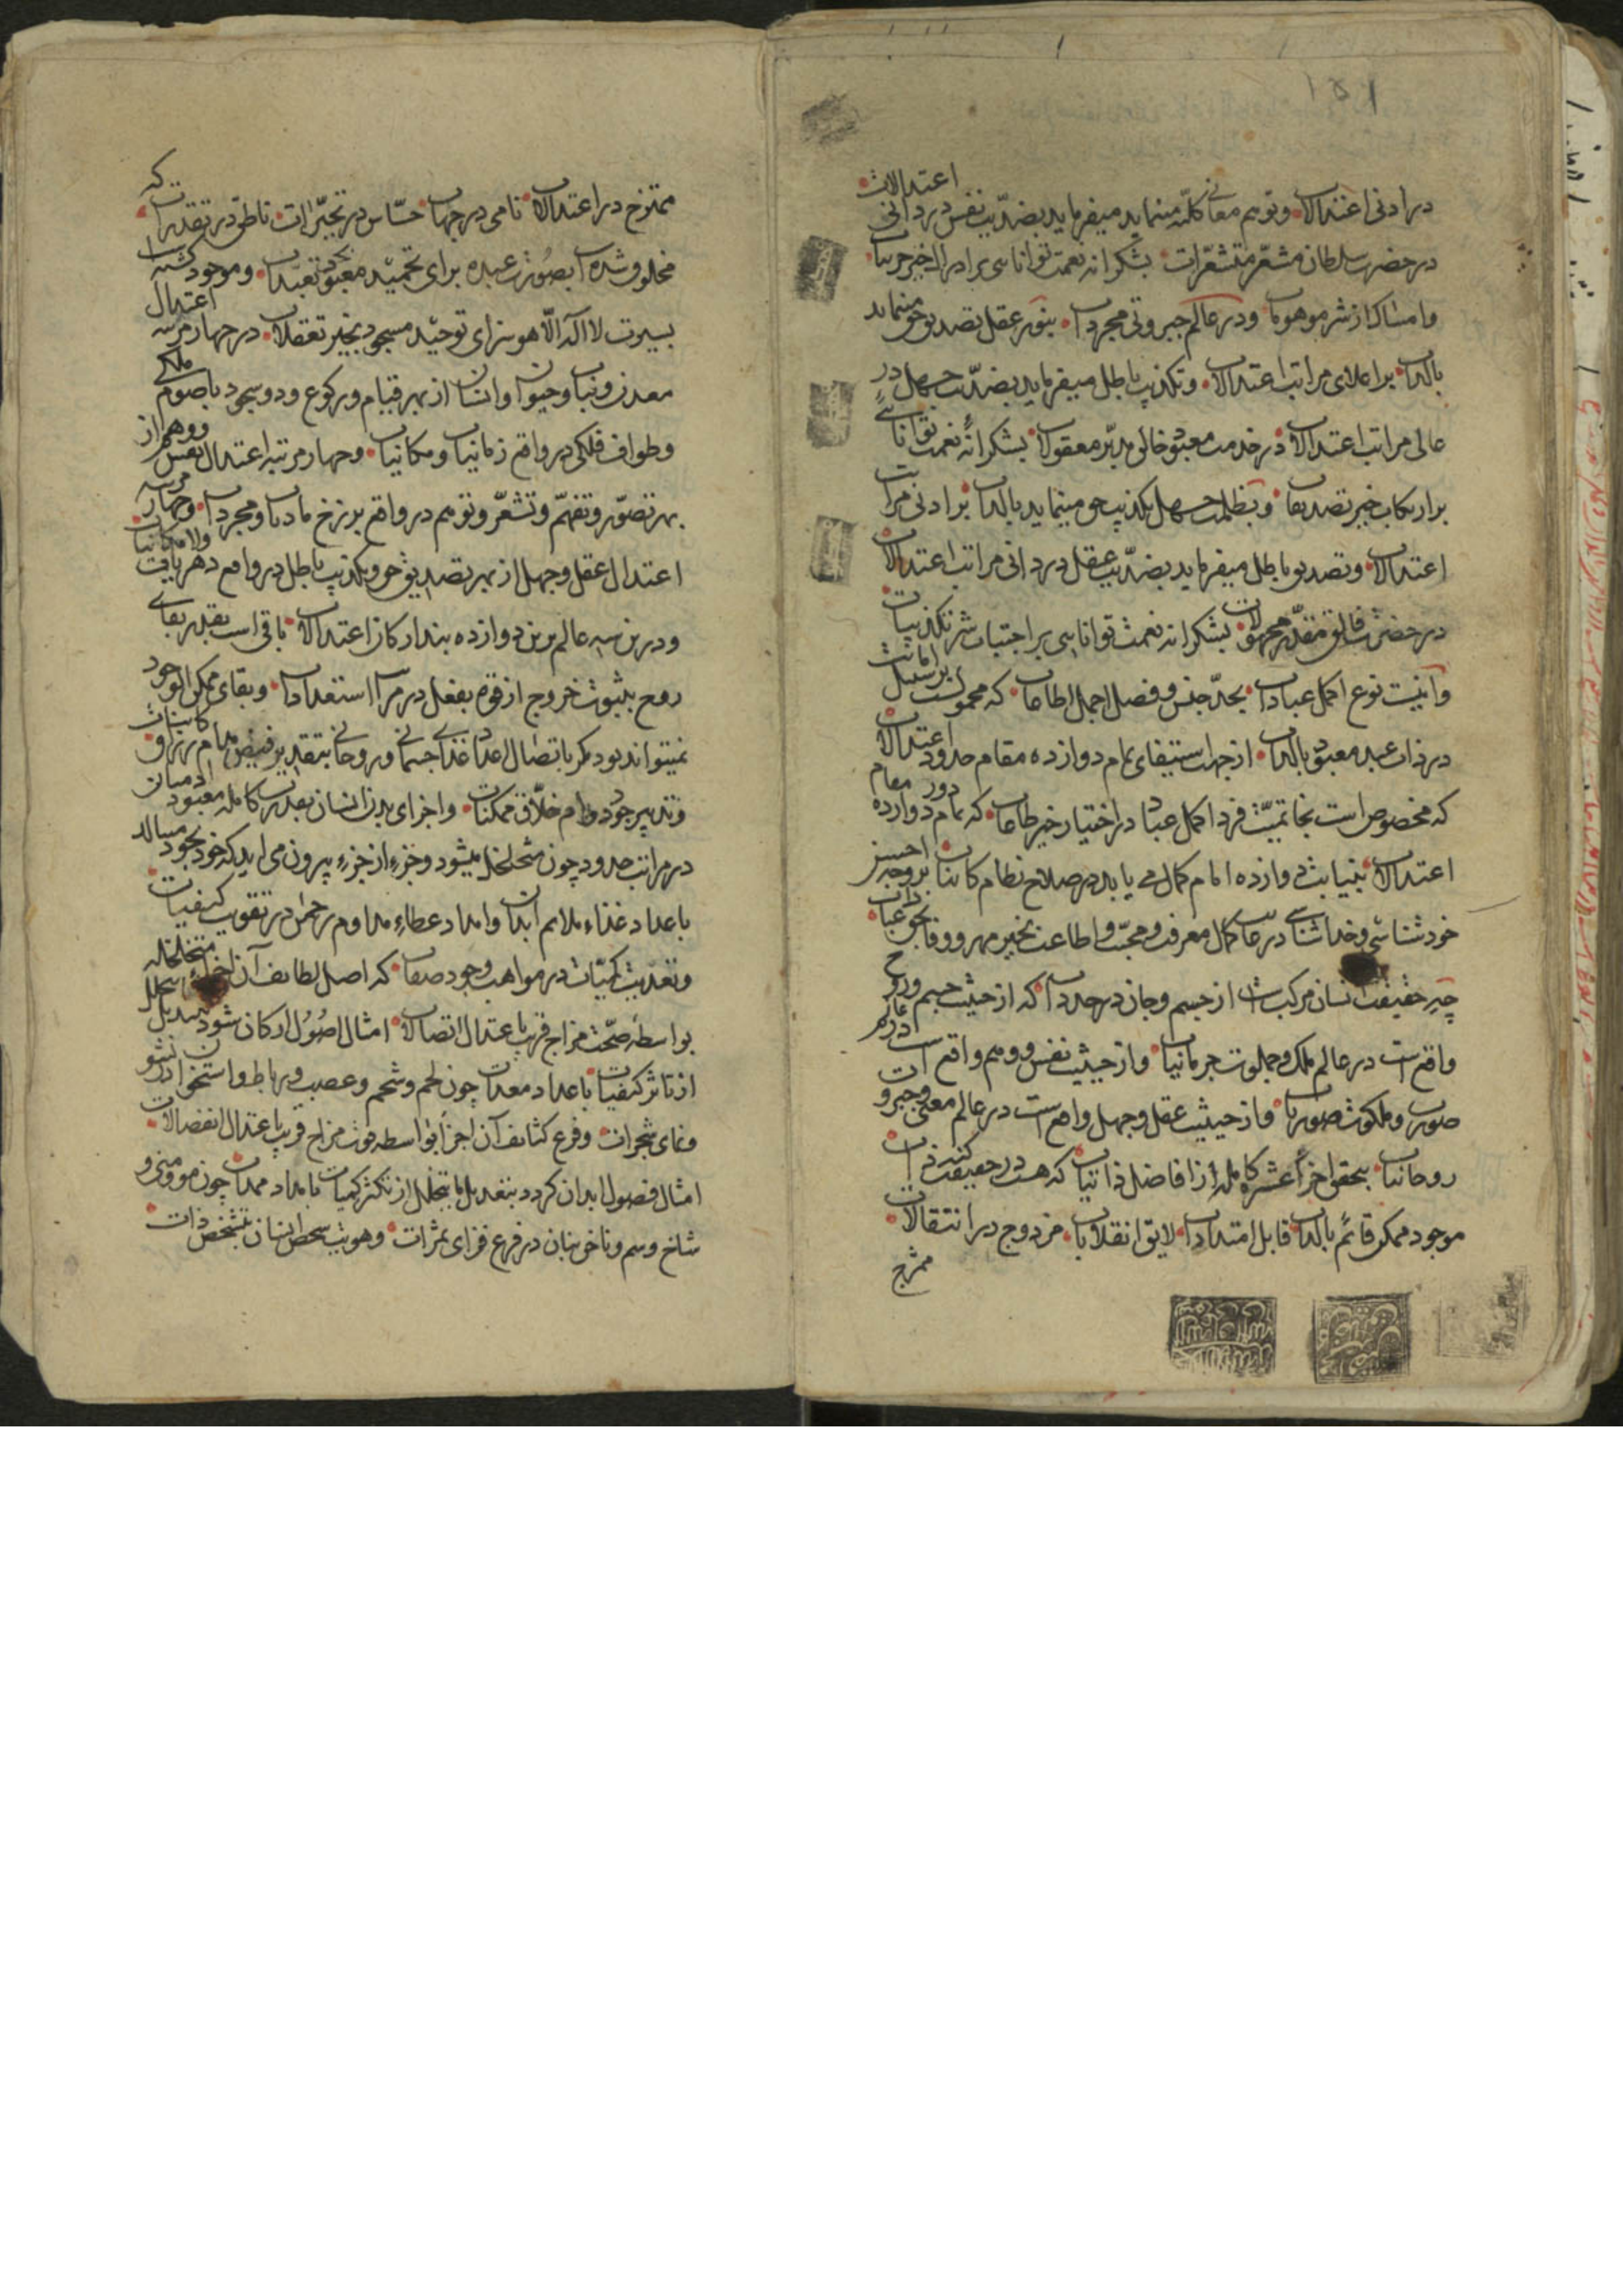 در ادنی اعتدالات و توهم معانی کلیّه مینماید میفرماید بضدّیت نفس در دانی اعتدالات
در حضرت سلطان مشعّر متشعّرات بشکرانه نعمت توانایی بر ادراک خیر جزییات
و امساک از شر موهومات و در عالم جبروتی مجردات بنور عقل تصدیق حق مینماید
بالذات بر اعلای مراتب اعتدالات و تکذیب باطل میفرماید بضدّیت جهل در
عالی مراتب اعتدالات در خدمت معبود خالق مدبّر معقولات بشکرانهٔ نعمت توانایی
بر ارتکاب خیر تصدیقات و بظلمت جهل تکذیب حق مینماید بالذات بر ادنی مراتب
اعتدالات و تصدیق باطل میفرماید بضدّیت عقل در دانی مراتب اعتدالات
در حضرت خالق مقدّر مجهولات بشکرانه نعمت توانایی بر اجتناب شر تکذیبات
و آنیت نوع اکمل عبادات بحدّ جنس و فصل اجمل اطاعات که محمولست بر سبیل امانت
در ذات عبد معبود بالذات از جهت استیفای تمام دوازده مقام حدود اعتدالات
که مخصوص است بخاتمیّت فرد اکمل عباد در اختیار خیر طاعات که تمام دوازده مقام
اعتدالات بنیابت دوازده امام کمال می یابد در صلاح نظام کاینات بر وجه احسن
خودشناسی و خداشناسی در کمال معرفت و محبّت و اطاعت بخیر مهر و وفا
چه حقیقت انسان مرکب است از جسم و جان در حد ذات که از حیثیت جسم و روح
واقع است در عالم ملک و جلوت جرمانیات و از حیثیت نفس و وهم واقع است در عالم
صورت و ملکوت صوریات و از حیثیت عقل و جهل واقع است در عالم معنی و جبروت
روحانیات بتحقق اجزا عشره کامله از افاضل ذاتیات که هست در حقیقت
موجود ممکن قائم بالذات قابل امتدادات لایق انقلابات مزدوج در انتقالات
ممتزج
ممتزج در اعتدالات نامی در جهات حسّاس در تحیّزات ناطق در تقدیرات که
مخلوق شده است بصورت عبده برای تحمید معبود تعبدات و موجود گشته
بسیرت لا اله الّا هو سزای توحید مسجود بخیر تعقلات در چهار مرتبه اعتدال
معدن و نبات و حیوان و انسان از بهر قیام و رکوع و دو سجود با صوم ملکی
و طواف فلکی در واقع زمانیات و مکانیات و چهار مرتبه اعتدال نفس و وهم از
بهر تصوّر و تفهّم و تشعّر و توهم در واقع برزخ مادیات و مجردات و چهار مرتبه
اعتدال عقل و جهل از بهر تصدیق حق و تکذیب باطل در واقع دهریات و لامکانیات
و در برین سه عالم برین دوازده بند ارکان اعتدالات باقی است بقدر بقای
روح بثبوت خروج از قوه بفعل در مر استعدادات و بقای ممکن الوجود
نمیتواند بود مگر باتصال اعداد غذای جسمانی و روحانی بتقدیر فیض مدام رزاق کاینات
و تدبیر جود دوام خلّاق ممکنات و اجزای بدن انسان بعد کامله معبود
در مراتب حدود چون متحلخل میشود و جزء از جزء بیرون می آید که خود بخود
باعداد غذاء ملائم ابدان و امداد عطاء مداوم رحمن در تقویت کیفیات
و تعدیت کمیّات در مواهب وجود صفات که اصل لطایف آن اجزاء متخلخله
بواسطهٔ صحّت مزاج قریب باعتدال اتصالات امثال اصول ارکان شود
از تاثر کیفیات باعداد معدات چون لحم و شحم و عصب و رباط و استخوان در نشو
و نمای شجرات و فرع کثایف آن اجزا بواسطه قوت مزاج قریب باعتدال انفصالات
امثال فصول ابدان گردد بتعدیل ما یتحلل از تکثر کمیات بامداد ممدات چون مو و منی و
شاخ و سم و ناخن بنان در فرع فزای ثمرات و هویت شخص انسان بتشخص ذات